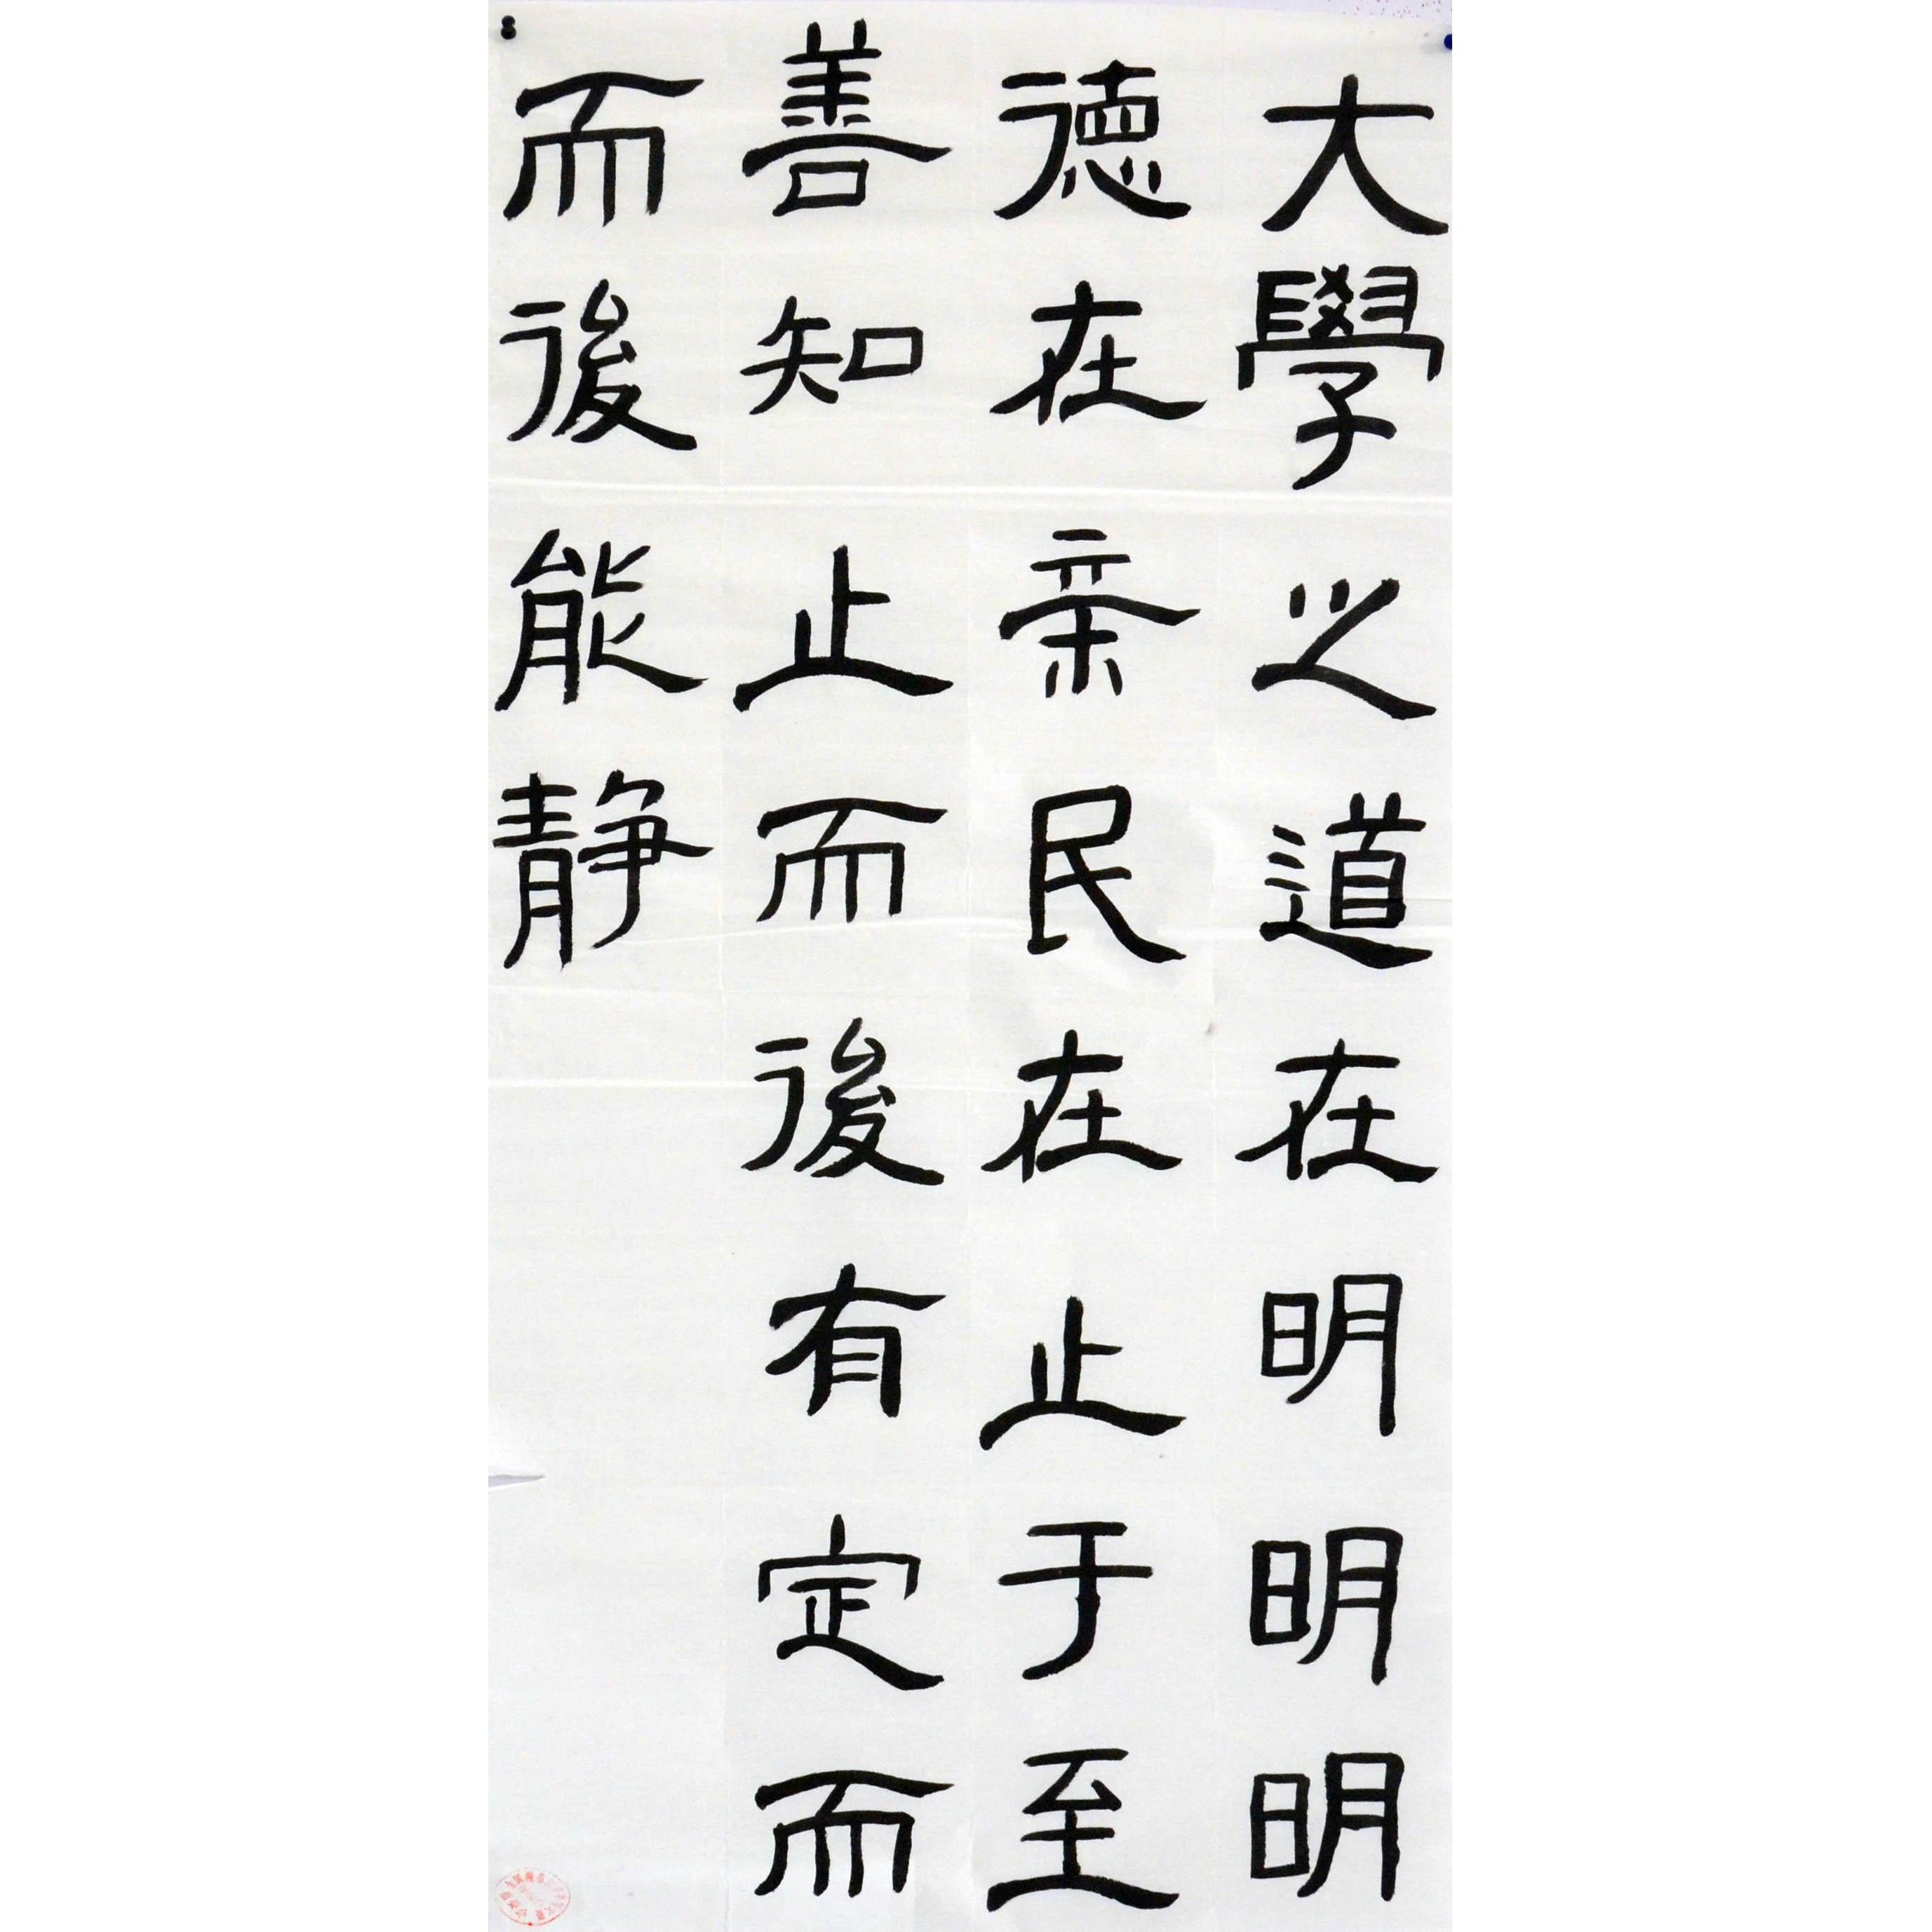 大學之道在明明明
德在亲民在止于至
善知止而後有定而
而後能静